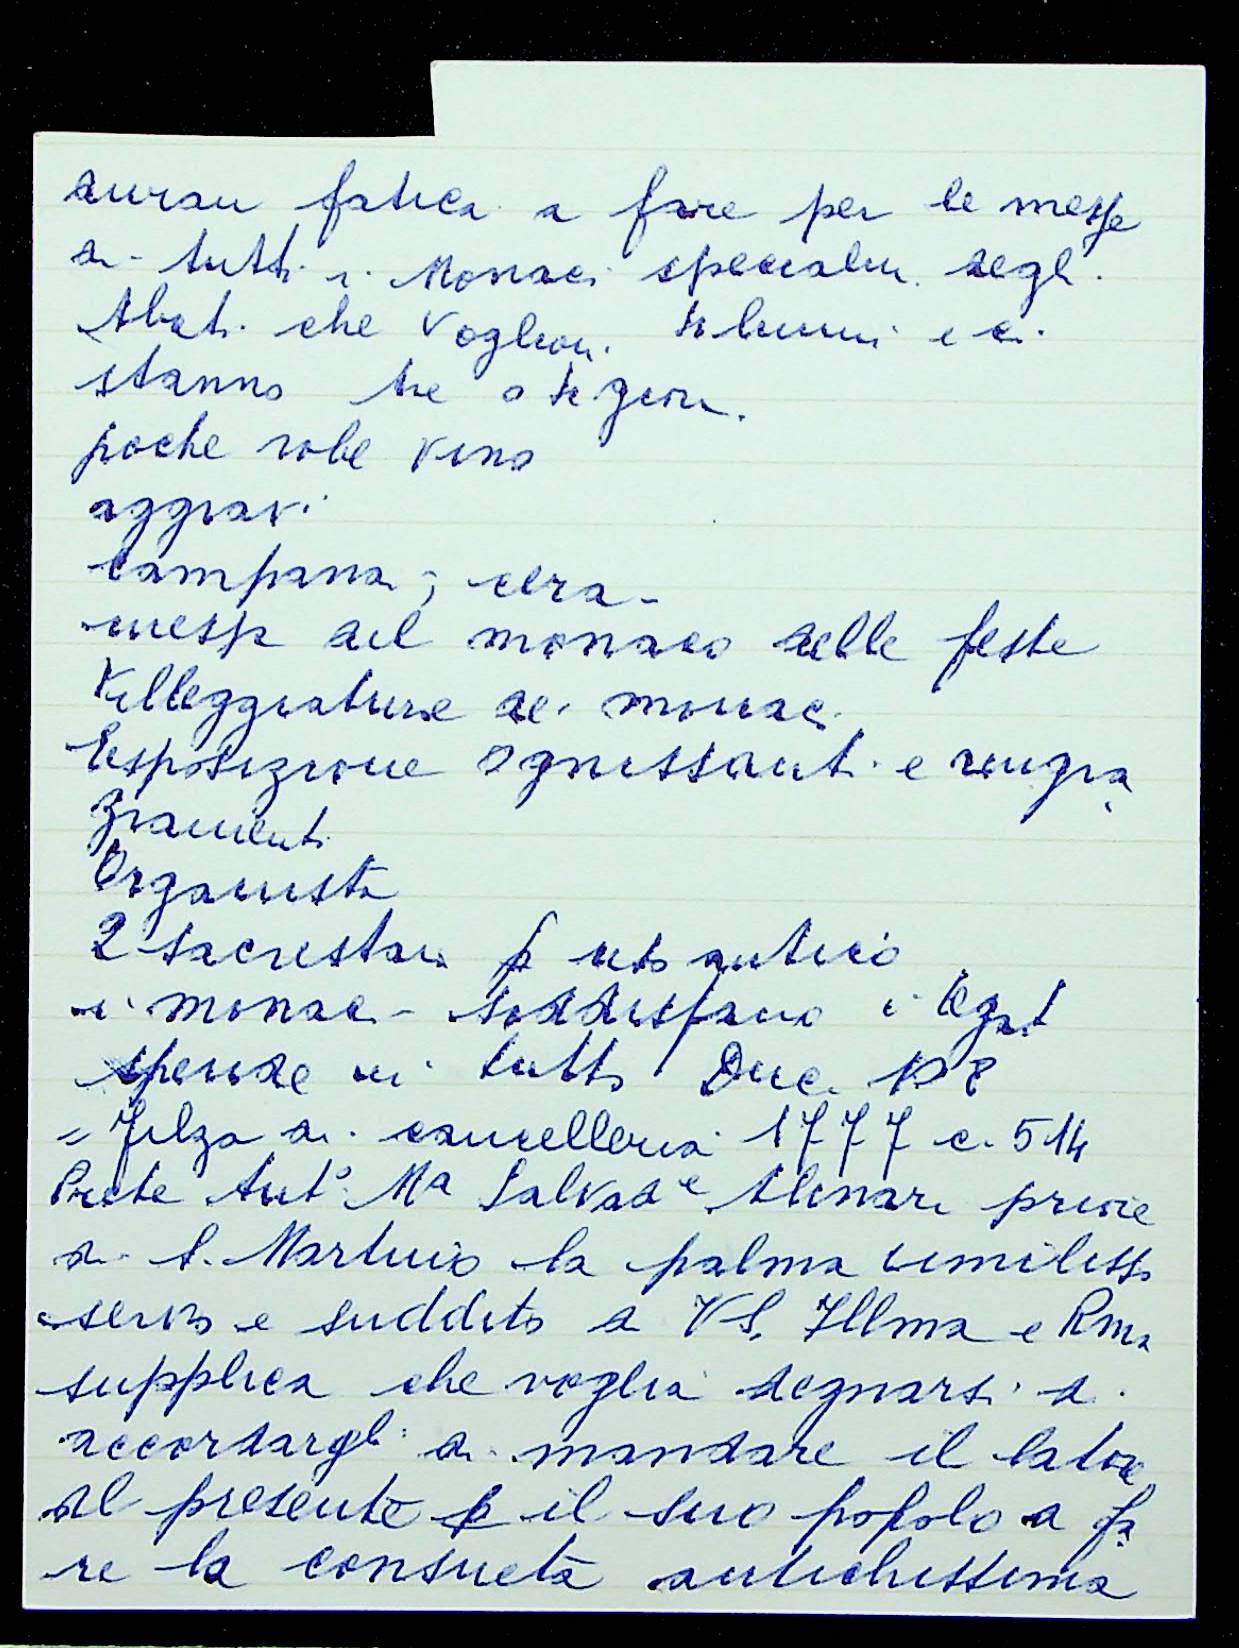 fatica a fare per le messe
di tutti i Monaci specialm. degl.
Abati che voglion. 4 lumi e ci
stanno tre o 4 giorn.
poche robe vino
aggravi
campana; cera -
messe del monaco delle feste
Villeggiature dei monaci
Esposizione Ognissanti e ringra
ziamenti
Organista
2 sacrestani p uso antico
i monaci soddisfano i legati
spende in tutto Duc.
= Filza di cancelleria 1777 c. 514
Prete Antº Mª Salvadᵉ Alinari priore
di S. Martino la palma umiliss
servo e suddito a VS. Illma e Rma
supplica che voglia degnarsi di
accordargli di mandare il latore
del presente p il suo popolo a fa
re la consueta antichissima